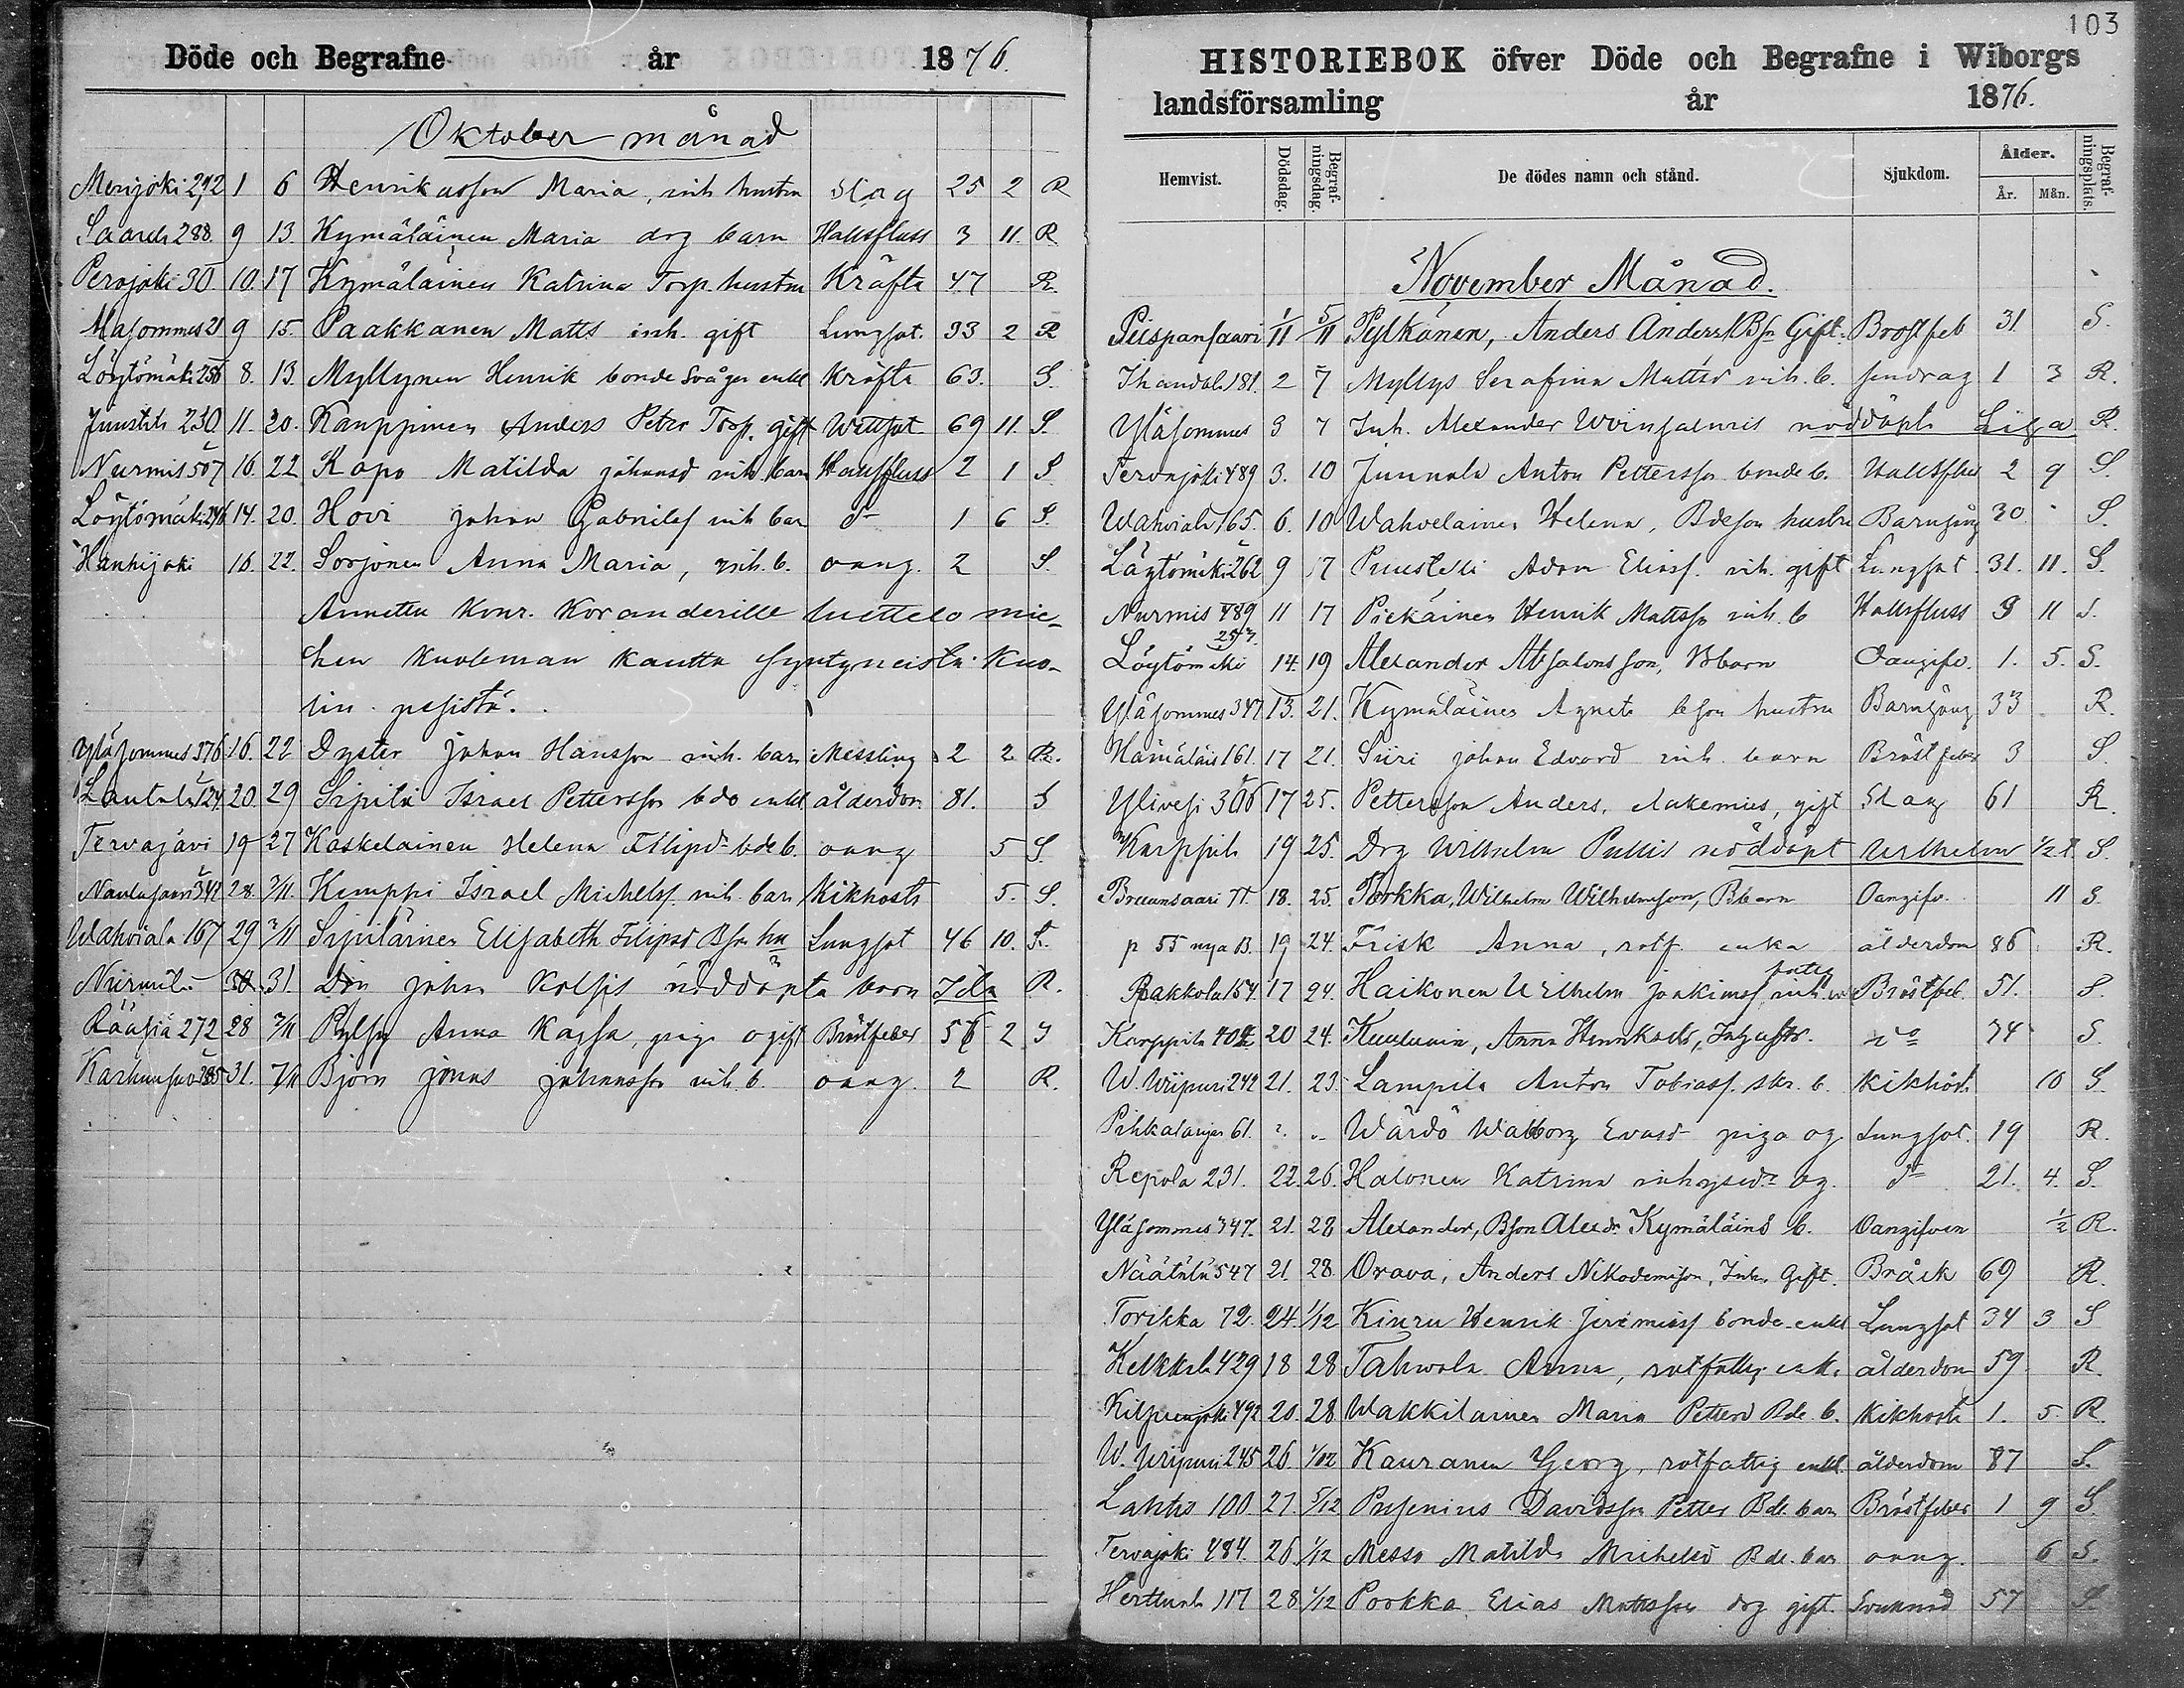 Döde och Begrafne år 1876.
Oktober månad
Merijoki 292 1 6 Henriksson Maria, inh hustru Slag 25 2 R
Saarela 288. 9 13. Kymäläinen Maria drg barn Halsfluss 3 11. R
Perojoki 30. 10. 17 Kymäläinen Katrina Torp. hustru Kräfta 47 R.
Alasommes 21 9 15. Paakkanen Matts inh. gift Lungsot. 33 2 R
Löytömäki 256 8. 13. Myllynen Henrik bonde Svåger enkl Kräfta 63. S.
Juustila 230 11. 20. Kauppinen Anders Petri Torp. gift Wattsot 69 11. S.
Nurmis 507 16. 22 Kopo Matilda johansd inh. barn Halsfluss 2 1 S
Löytömäki 246 14. 20. Hovi johan Gabrielss inh bar do 1 6 S.
Hanhijoki 16. 22. Sorjonen Anna Maria, inh. b. oang. 2 S.
Annettu Konr. Koranderille luettelo mie-
hen kuoleman kautta syntyneistä kuo-
lin pesistä.
Yläsommes 376 16. 22 Dyster johan Hansson inh. barn Messling 2 2 R.
Lautala 124 20. 29 Sipilä Israel Pettersson bde enkl ålderdom 81. S
Tervajärvi 19 27 Kaskelainen Helena Filipsd. bde b. oang 5 S.
Naulasaari 342 28. 3/11. Kemppi Israel Michelss. inh. barn Kikhosta 5. S.
Wahviala 167 29 3/11 Sipiläinen Elisabeth Filipsd Bson hu Lungsot 46 10. S.
Nurmi 31. johan nöddöpta barn Ida R.
Rääsiä 272 28 3/11 Pylsy Anna Kajsa, piga ogift Bröstfeber 56 2 S
Karhusuo 385 31. 7/11 Björn jonas johansson inh. b. oang. 2 R.
103
HISTORIEBOK öfver Döde och Begrafne i Wiborgs
landsförsamling år 1876.
Hemvist. Dödsdag. Begrafningsdag. De dödes namn och stånd. Sjukdom. Ålder. År. Mån. Begrafningsplats.
November Månad.
Piispansaari 1/11 5/11 Pylkänen, Anders Anderss. Bsn Gift. Bröstfeb 31. S.
Ihantala 181. 2 7 Myllys Serafina Mattsd inh. b. sendrag 1 3 R.
Yläsommes 3 7 Inh. Alexander nöddöpta Lisa R.
Tervajoki 489 3. 10 Junnola Anton Pettersson bonde b. Halsfluss 2 9 S.
Wahviala 165. 6. 10 Wahvelainen Helena, Bdeson hustru Barnsäng 30 S.
Löytömäki 262 9 17 Puustelli Adam Eliass. inh. gift Lungsot 31. 11. S.
Nurmis 489 11 17 Piekäinen Henrik Mattss inh. b Halsfluss 3 11 S.
Löytömäki 257 14. 19 Alexander Absalonsson, Bbarn Oangifv. 1. 5. S.
Yläsommes 347 13. 21. Kymäläinen Agneta bson hustru Barnsäng 33 R.
Hämäläis 161. 17 21. Siiri johan Edvard inh. barn Bröstfeber 3 S.
Ylivesi 306 17 25. Pettersson Anders, Lukemies, gift Slag 61 R.
Karppila 19 25. Drg Wilhelm Pullis nöddöpt Wilhelm 1/2 t S.
Bruunsaari 77. 18. 25. Torkka, Wilhelm Wilhelmsson, Bbarn Oangifv. 11 S.
p 55 nya 13. 19 24. Frisk Anna, rotf. enka ålderdom 86 R.
Pakkola 154. 17 24. Haikonen Wilhelm Joakimss. inh. Bröstfeb. 51. S.
Karppila 404 20 24. Kuulunin, Anna Henriksdr, Inhysh. do 74 S
W. Wiipuri 242 21. 23. Lampila Anton Tobiass. skr. b. Kikhost 10 S.
Pihkalanjär 61. ?. „ Wärdö Walborg Evasd piga og Lungsot. 19 R.
Repola 231. 22. 26. Halonen Katrina inhysesd. og. do 21. 4. S.
Yläsommes 347. 21. 28 Alexander, Bson Alexdr Kymäläins b. Oangifven 1/2 R.
Näätälä 547 21. 28. Orava, Anders Nikodemisson, Inh. Gift. Bråck 69 R.
Torikka 72. 24. 1/12 Kiuru Henrik Jeremiass bonde enkl Lungsot 34 3 S
Kelkkala 429 18 28 Tahvola Anna, rotfattig enka ålderdom 59 R.
Kilpeenjoki 492 20. 28 Wakkilainen Maria Pettersd Bde. b. Kikhosta 1. 5. R.
W. Wiipuri 245 26. 1/12 Kauranen Georg, rotfattig enkl. ålderdom 87 S.
Lahtis 100. 27. 5/12 Pusenius Davidsson Petter Bde. barn Bröstfeber 1 9 S.
Tervajoki 484. 26. 1/12 Messo Matilda Michelsd Bde. bar oang. 6 S.
Herttuala 117 28. 1/12 Porkka Elias Mattsson drg gift. 57 S